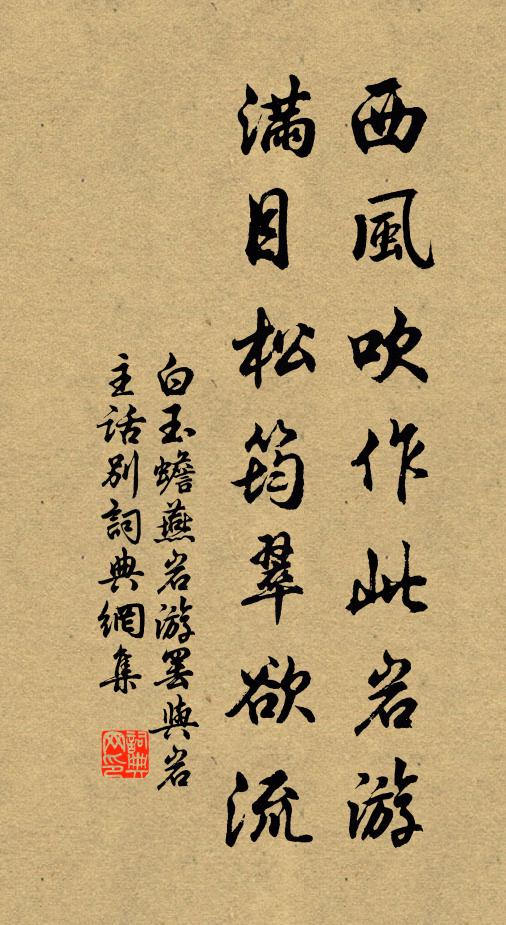 西風吹作此岩游
滿目松筠翠欲流
白玉蟾燕岩游罢與岩
主話别詞典網集
詞典网印